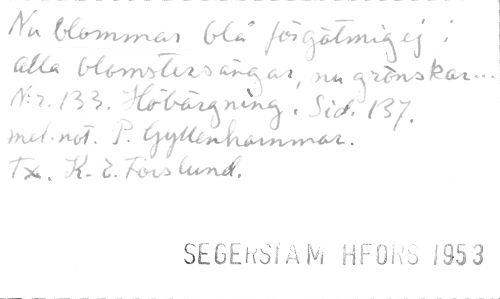 Nu blommar blå förgätmigej i
alla blomstersängar, nu grönskar...
N:r. 133. Höbärgning. Sid. 137.
mel. not. P. Gyllenhammar.
Tx. K-E. Forslund.
SEGERSTAM HFORS 1953